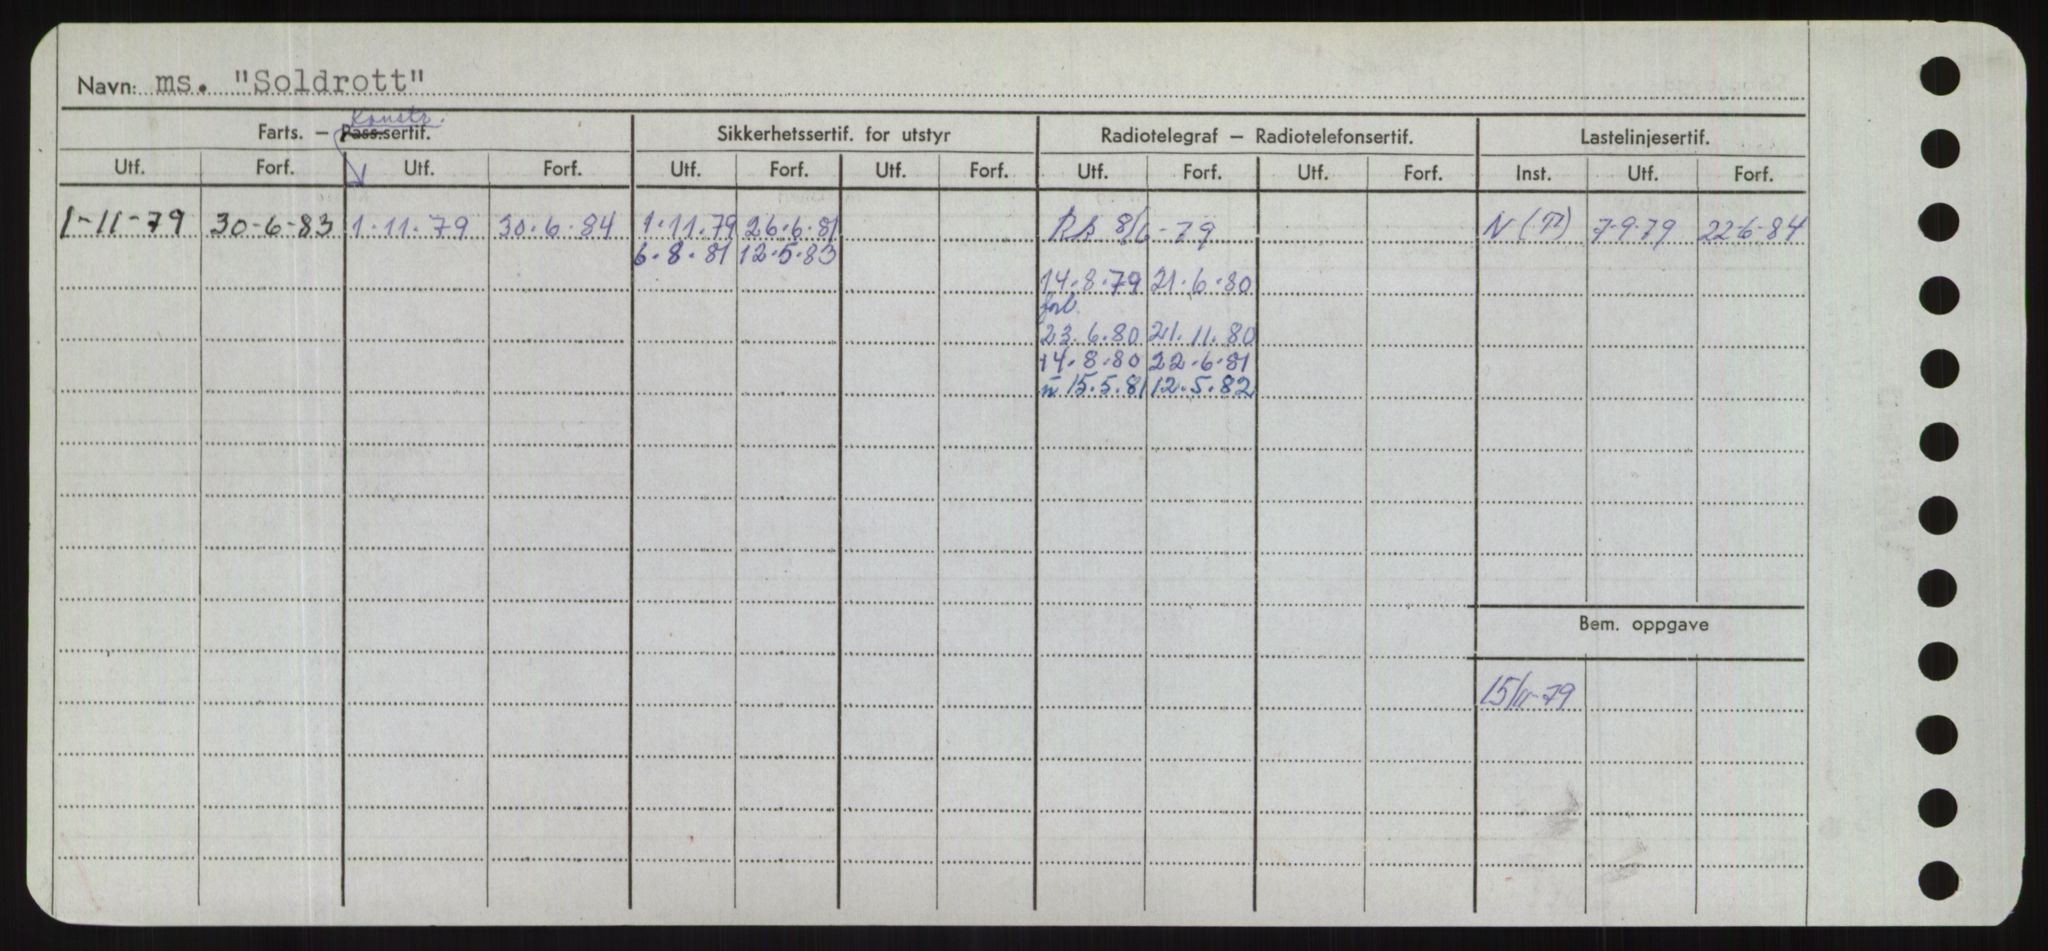 Navn: ms. "Soldrott"
Konstr.
Farts. — Pass.sertif. Sikkerhetssertif. for utstyr Radiotelegraf — Radiotelefonsertif. Lastelinjesertif.
Utf. Forf. Utf. Forf. Utf. Forf. Utf. Forf. Utf. Forf. Utf. Forf. Inst. Utf. Forf.
1-11-79 30-6-83 1.11.79 30.6.84 1.11.79 26.6.81 8/6-79 N (TI) 7-9-79 22-6-84
6.8.81 12.5.83
14.8.79 21.6.80
forl.
23.6.80 21.11.80
14.8.80 22.6.81
15.5.81 12.5.82
Bem. oppgave
15/11-79